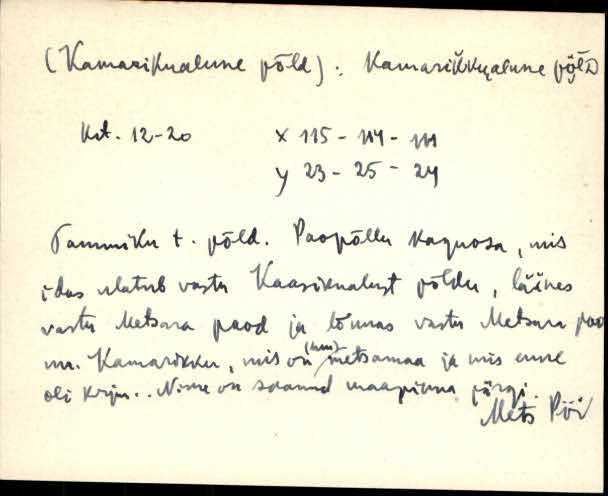 (Kamarikualune põld). Kamarikkualune põld
Krt. 12-20 X 115 - 114 - 111
y 23 - 25 - 24
Tammiku t. põld. Paopõllu kaguosa, mis
idas ulatub vastu Kaasikualust põldu, läänes
vastu Metsara paod ja lõunas vastu Metsara pao
nn. Kamarikku, mis on (nüüd) metsamaa ja mis enne
oli karju.. Nime on saanud maapinna järgi.
Mets